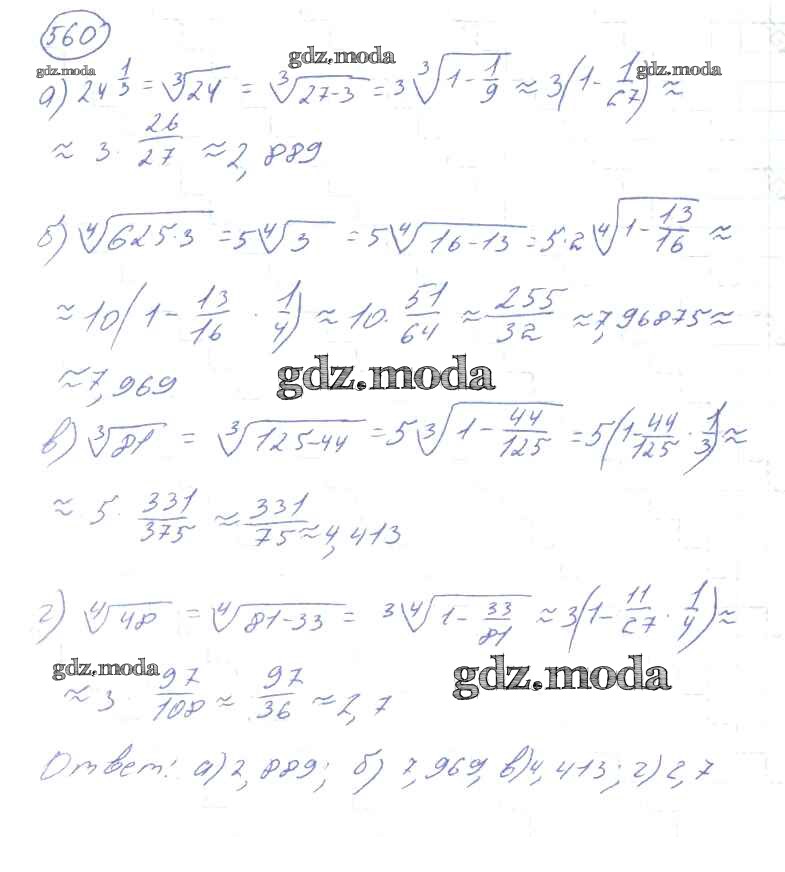 560
gdz.moda
gdz.moda
gdz.moda
а) 24^(1/3) = ∛24 = ∛(27-3) = 3 ∛(1 - 1/9) ≈ 3(1 - 1/27) ≈
≈ 3 · 26/27 ≈ 2,889
б) ∜(625·3) = 5∜3 = 5∜(16-13) = 5·2 ∜(1 - 13/16) ≈
≈ 10(1 - 13/16 · 1/4) ≈ 10 · 51/64 ≈ 255/32 ≈ 7,96875 ≈
≈ 7,969
gdz.moda
в) ∛81 = ∛(125-44) = 5 ∛(1 - 44/125) = 5(1 - 44/125 · 1/3) ≈
≈ 5 · 331/375 ≈ 331/75 ≈ 4,413
г) ∜48 = ∜(81-33) = 3 ∜(1 - 33/81) ≈ 3(1 - 11/27 · 1/4) ≈
gdz.moda
gdz.moda
≈ 3 · 97/108 ≈ 97/36 ≈ 2,7
Ответ: а) 2,889; б) 7,969, в) 4,413; г) 2,7